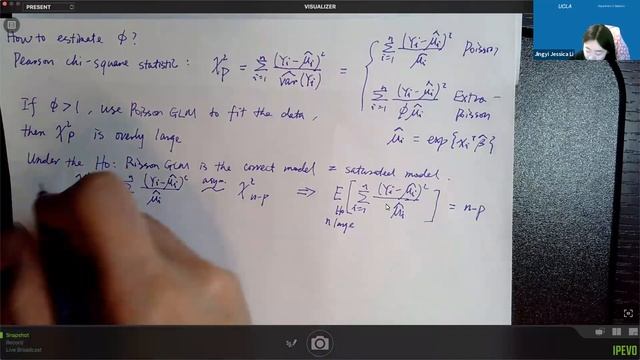 PRESENT
VISUALIZER
UCLA
Jingyi Jessica Li
How to estimate ϕ?
Pearson chi-square statistic: χ²_P = Σ_{i=1}^n (Yᵢ-μ̂ᵢ)²/var̂(Yᵢ) = { Σ_{i=1}^n (Yᵢ-μ̂ᵢ)²/μ̂ᵢ Poisson
Σ_{i=1}^n (Yᵢ-μ̂ᵢ)²/ϕμ̂ᵢ Extra-Poisson
If ϕ>1, use Poisson GLM to fit the data,
then χ²_P is overly large
μ̂ᵢ = exp{xᵢᵀβ̂}
Under the H₀: Poisson GLM is the correct model = saturated model.
(Yᵢ-μ̂ᵢ)²/μ̂ᵢ asym. ~ χ²_{n-p} ⇒ E_{H₀} [Σ_{i=1}^n (Yᵢ-μ̂ᵢ)²/μ̂ᵢ] = n-p
n large
Snapshot
Record
Live Broadcast
IPEVO